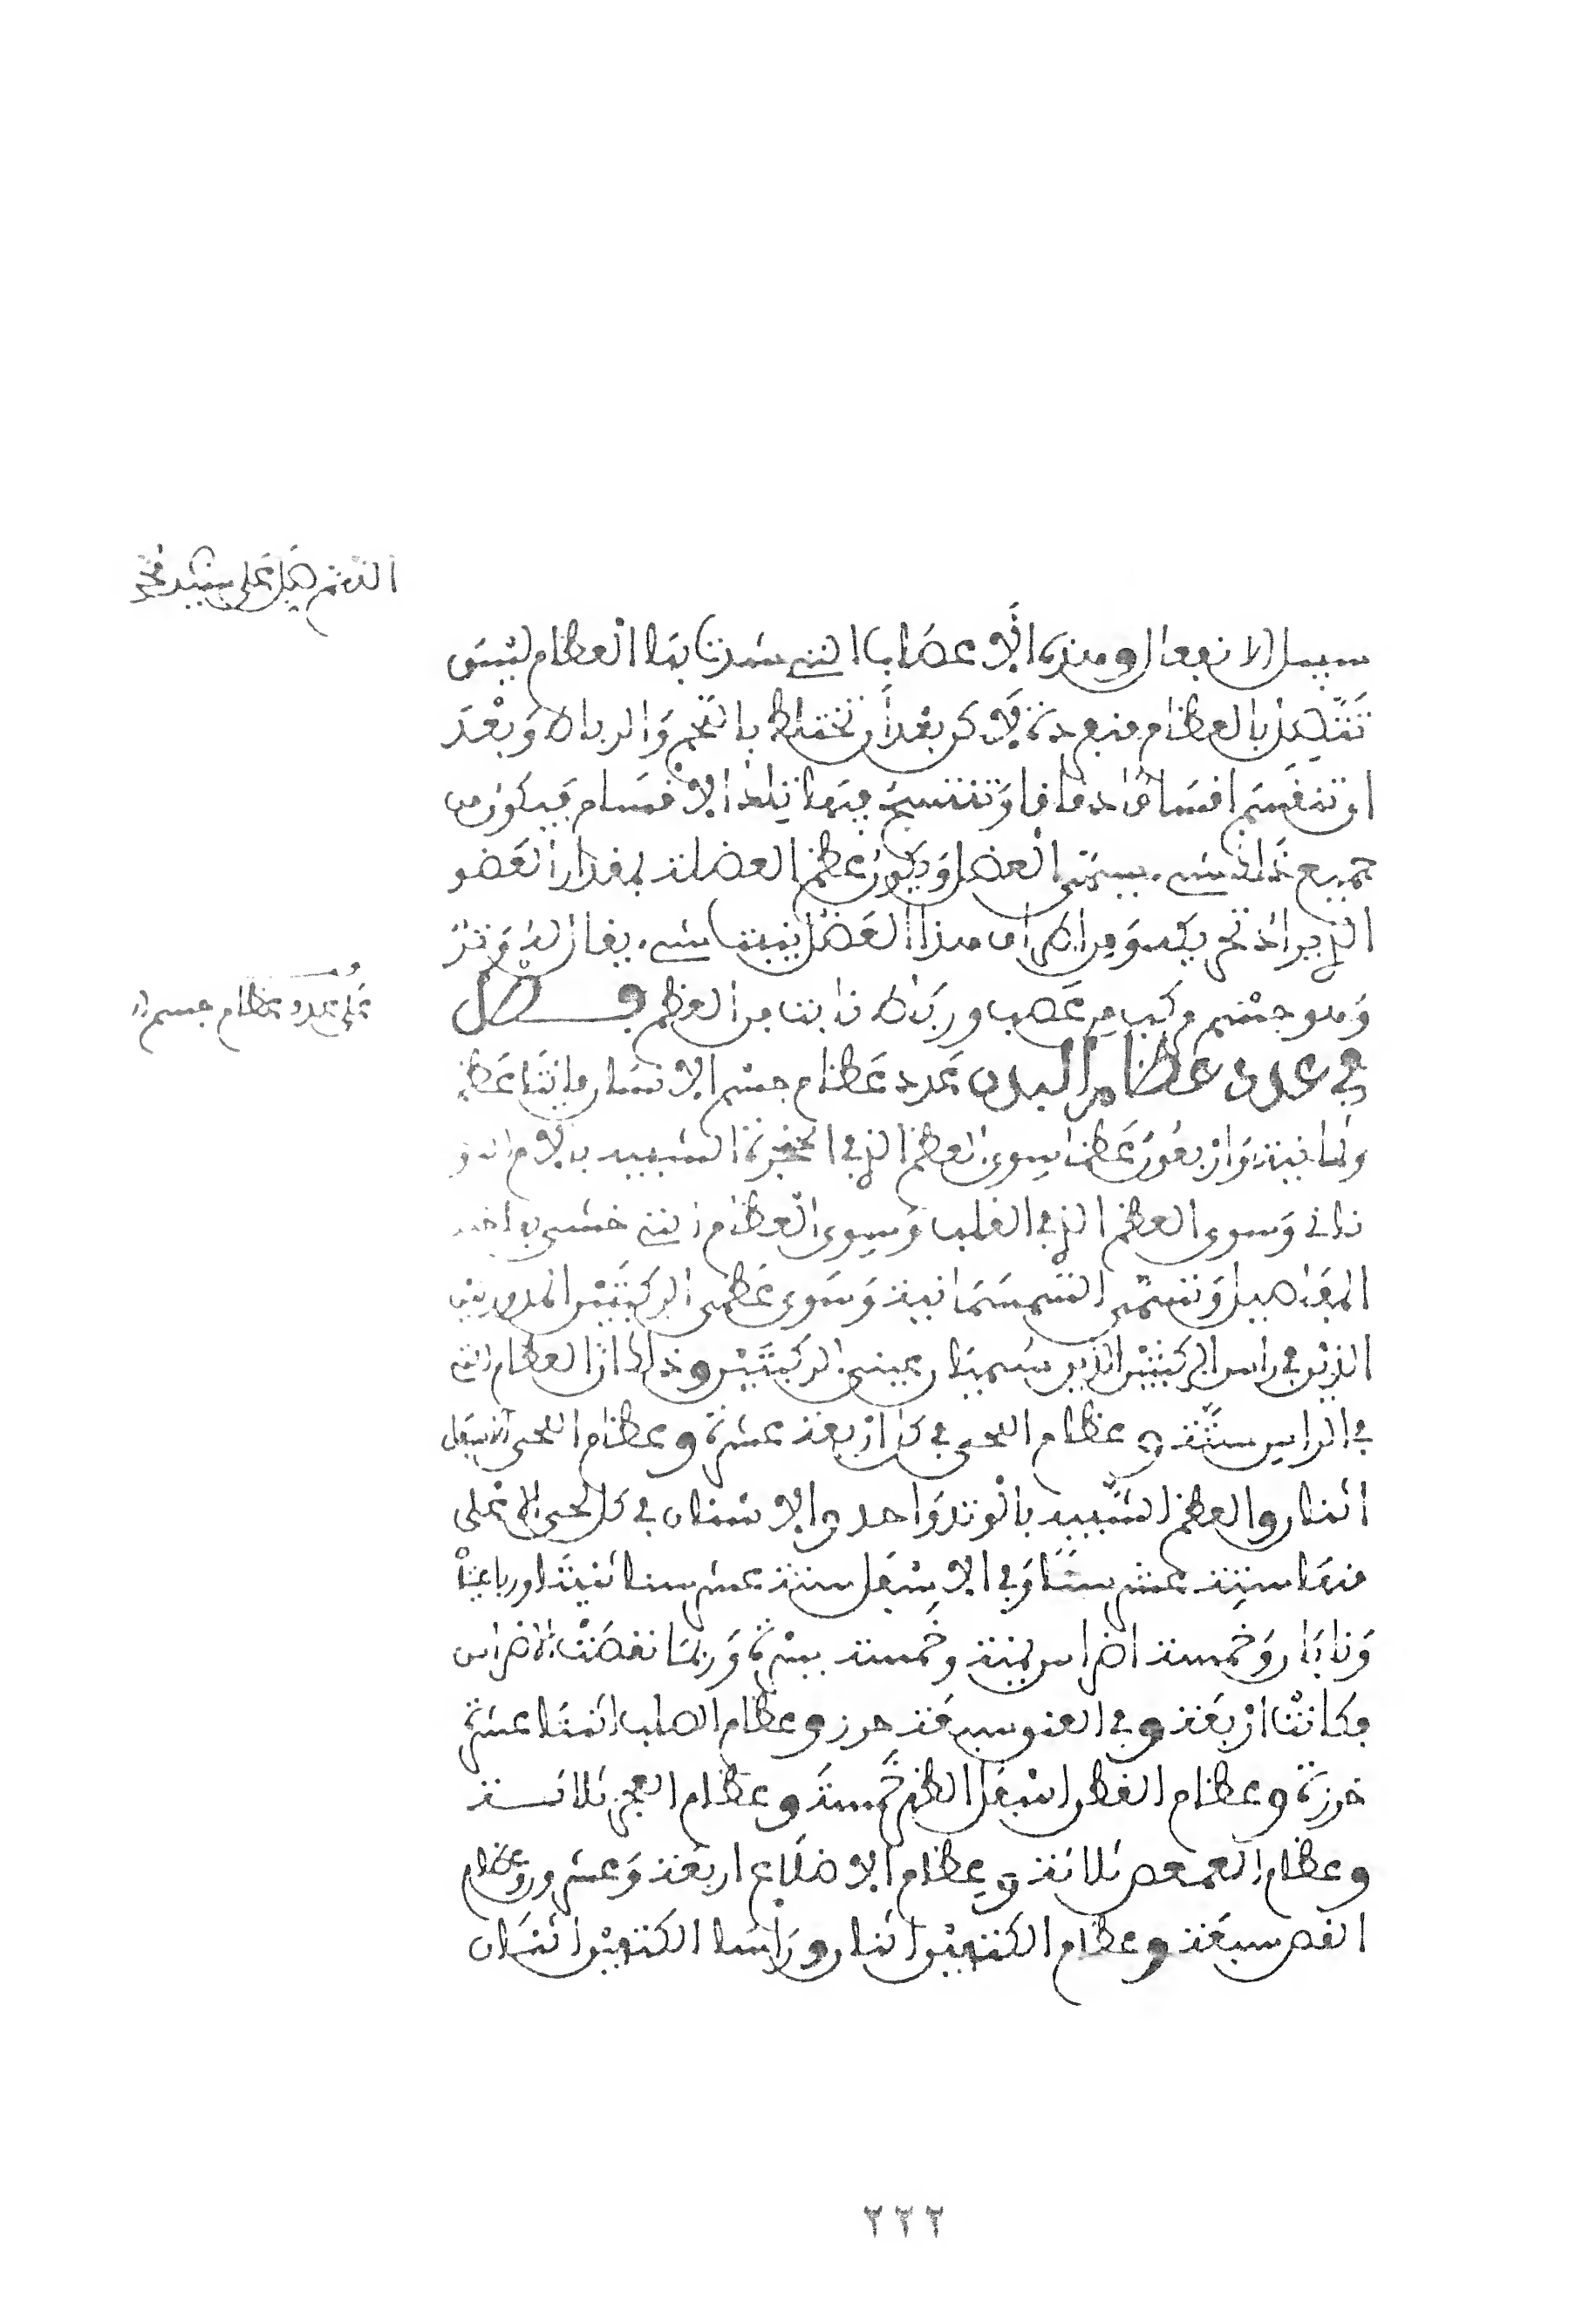 اللهم صل على سيد محمد
سبيل الانفعال وهذه الأعصاب التي شدت بها العظام ليس
تتصل بالعظام منفردة لاكن بعد أن تختلط باللحم والرباط وبعد
ان تنقسم اقساما دقاقا وتنتسج فيها تلك الاقسام فيكون من
جميع ذلك شيء يسمى العضل ويكون عظم العضلة بمقدار العضو
الذي يراد تحريكه ومن اطراف هذا العضل ينبت شيء يقال له وتر
وهو جسم مركب من عصب ورباط نابت من العظم فصل
على عدد عظام جسم
في عدد عظام البدن عدد عظام جسم الانسان مائتا عظم
وثمانية وأربعون عظما سوى العظم الذي في الحنجرة الشبيه بلام
وسوى العظم الذي في القلب وسوى العظام التي حشي بها خلل
المفاصيل وتسمى السمسمانية وسوى عظمي الركبتين المدورين
الذين في راس الركبتين الذين يسميان عيني الركبتين وذلك ان العظام التي
في الراس ستة وعظام اللحي في كل أربعة عشرة وعظام اللحى الاسفل
اثنان والعظم الشبيه بالوتد واحد والاسنان في كل لحى الاعلى
منها ستة عشر سنا وفي الاسفل ستة عشر سنا ثنيتان ورباعيتان
ونابان وخمسة اضراس يمنة وخمسة يسرة وربما نقصت الاضراس
فكانت أربعة وفي العنق سبعة خرز وعظام الصلب اثنتا عشرة
خرزة وعظام القطن اسفل الظهر خمسة وعظام العجز ثلاثة
وعظام العصعص ثلاثة وعظام الاضلاع اربعة وعشرون وعظام
القص سبعة وعظام الكتفين اثنان وراسا الكتفين اثنان
٢٢٢